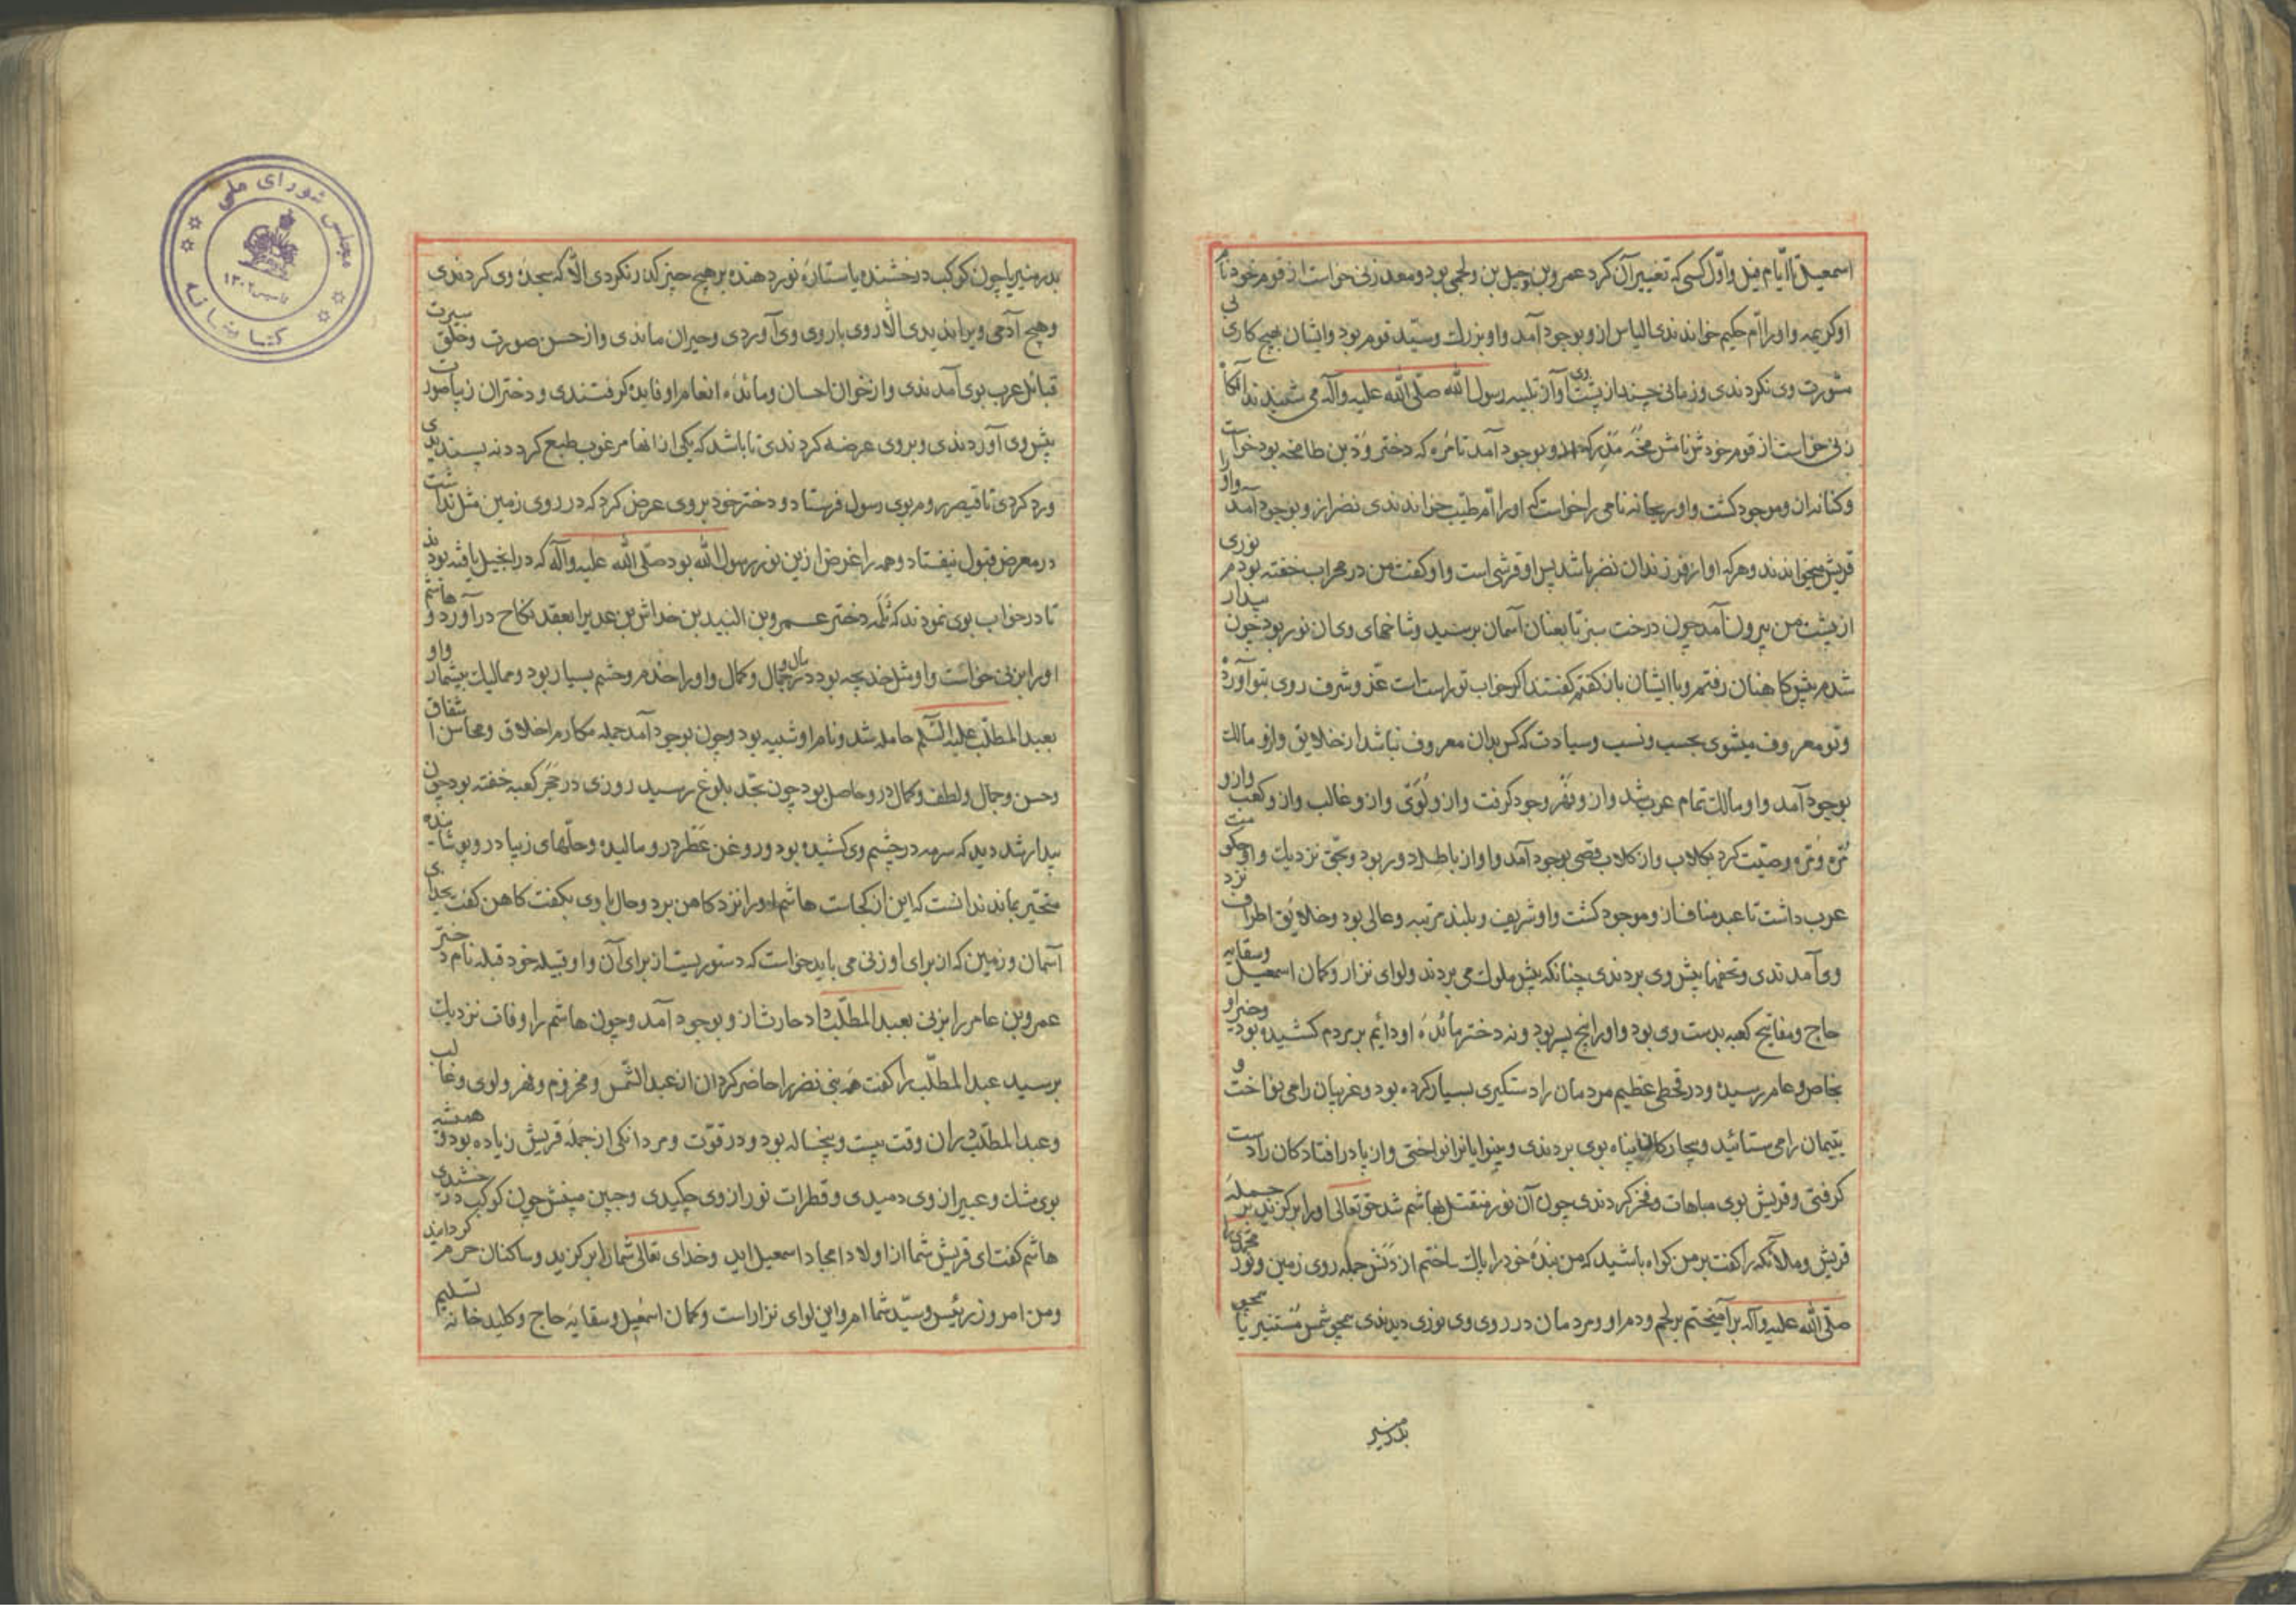 اسمعیل تا ایّام فیل واوّل کسی که تغییر آن کرد عمرو بن لحی بود ومعد زنی خواست از قوم خود نام
او کریمه واورا امّ حکیم خواندندی الیاس ازو بوجود آمد واو بزرك وسیّد قوم بود وایشان هیچ کاری بی
مشورت وی نکردندی وزمانی چند از پشت وی آواز تلبیه رسول الله صلّی الله علیه وآله می شنیدند
زنی خواست از قوم خودش نامش مدرکه ازو بوجود آمد تا مرّه که دختر ودّ بن طابخه بود خواست
وکنانه ازان وموجود کشت واو ریحانه نامی را خواست که اورا امّ طیّب خواندندی نضر ازو بوجود آمد واورا
قریش میخوانند وهرکه او از فرزندان نضر باشد پس او قرشی است واو کفت من در محراب خفته بودم نوری
از پشت من بیرون آمد چون درخت سبز تا بعنان آسمان برسید وشاخهای وی از نور بود چون بیدار
شدم پیش کاهنان رفتم وبا ایشان باز کفتم کفتند اکر خواب تو راست است عزّ وشرف روی بتو آورده
وتو معروف میشوی بحسب ونسب وسیادت که کس بدان معروف نباشد از خلایق وازو مالك
بوجود آمد واو مالك تمام عرب شد وازو فهر وجود کرفت وازو لوَی وازو غالب وازو کعب وازو
مرّه ومرّه وصیّت کرد بکلاب واز کلاب قصی بوجود آمد واو از باطل دور بود وبحقّ نزدیك واو حکومت
عرب داشت تا عبد مناف ازو موجود کشت واو شریف وبلند مرتبه وعالی بود وخلایق اطراف نزد
وی آمدندی وتحفها پیش وی بردندی چنانکه پیش ملوك می بردند ولوای نزار وکمان اسمعیل وسقایه
حاج ومفاتیح کعبه بدست وی بود واورا پنج پسر بود ونه دختر مائدهٔ او دائم بر مردم کشیده بود وخیر او
بخاص وعام رسیده ودر قحطی عظیم مردمان را دستکیری بسیار کرده بود وغریبان را می نواخت و
یتیمان را می ستائید وبیچارکان پناه بوی بردندی وبینوایانرا نواختی واز پا درافتادکان را دست
کرفتی وقریش بوی مباهات وفخر کردندی چون آن نور منتقل بهاشم شد حق تعالی اورا برکزید بر جملهٔ
قریش وملائکه را کفت بر من کواه باشید که من بندهٔ خود را پاك ساختم از دنس جمله روی زمین ونور محمّدی را
صلّی الله علیه وآله برآمیختم بر لحم ودم او ومردمان در روی وی نوری دیدندی همچو شمس مُستنیر یا
بدر منیر
بدر منیر یا چون کوکب درخشنده یا ستارهٔ نور دهنده بر هیچ چیز کذر نکردی الّا که سجدهٔ وی کردندی
وهیچ آدمی ویرا ندیدی الّا روی با روی وی آوردی وحیران ماندی واز حسن صورت وخلق سیرت
قبائل عرب بوی آمدندی واز خوان احسان ومائدهٔ انعام او فایده کرفتندی ودختران زیبا صورت
پیش وی آوردندی وبروی عرضه کردندی تا باشد که یکی از انها مرغوب طبع کردد نه پسندیدی
ورد کردی تا قیصر روم بوی رسول فرستاد ودختر خود بروی عرض کرد که در روی زمین مثل نداشت
در معرض قبول نیفتاد وهمه را غرض ازین نور رسول الله بود صلّی الله علیه وآله که در انجیل یافته بودند
تا در خواب بوی نمودند که سلمه دختر عمرو بن النبید بن خداش بن عدیرا بعقد نکاح درآورد و هاشم
اورا بزنی خواست واو مثل خدیجه بود در مال وجمال وکمال واورا خدم وحشم بسیار بود وممالیك بیشمار واو
بعبد المطّلب علیه السّلم حامله شد ونام او شیبه بود وچون بوجود آمد جمله مکارم اخلاق ومحاسن اشفاق
وحسن وجمال ولطف وکمال درو حاصل بود چون بحدّ بلوغ رسید روزی در حَجَر کعبه خفته بود چون
بیدار شد دید که سرمه در چشم وی کشیده بود وروغن عطر درو مالیده وحلّهای زیبا درو پوشانیده
متحیّر بماند ندانست که این از کجاست هاشم اورا نزد کاهن برد وحال با وی بکفت کاهن کفت بخدای
آسمان وزمین که از برای او زنی می باید خواست که دستوریست از برای آن واو قبیله خود قیله نام دختر
عمرو بن عامر را بزنی بعبد المطّلب داد حارث ازو بوجود آمد وچون هاشم را وفات نزدیك
برسید عبد المطّلب را کفت همه بنی نضر را حاضر کردان از عبد الشّمس ومخزوم وفهر ولوی وغالب
وعبد المطّلب دران وقت بیست وپنجساله بود ودر قوّت ومردانکی از جمله قریش زیاده بود وهمیشه
بوی مشك وعبیر از وی دمیدی وقطرات نور از وی چکیدی وجبین مبینش چون کوکب درخشیدی
هاشم کفت ای قریش شما از اولاد امجاد اسمعیل اید وخدای تعالی شمارا برکزید وساکنان حرم کردانید
ومن امروز رئیس وسیّد شما ام واین لوای نزار است وکمان اسمعیل وسقایهٔ حاج وکلید خانه تسلیم
مجلس شورای ملی
تاسیس ۱۳۰۲
کتابخانه